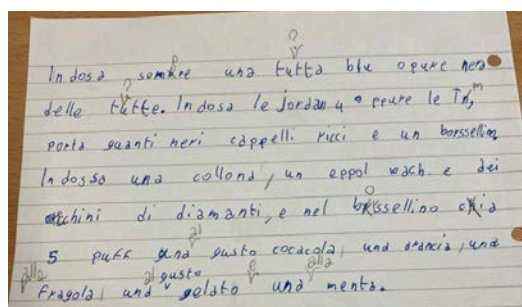 Indosa sempre una tutta blu opure nera
delle tutte. Indosa le jordan 4 oppure le Tn,
porta guanti neri cappelli ricci e un borsellino
Indossa una collana, un eppol wach e dei
orechini di diamanti, e nel borssellino
5 puff una al gusto cocacola, una arancia, una
alla fragola, una al gusto gelato e una alla menta.